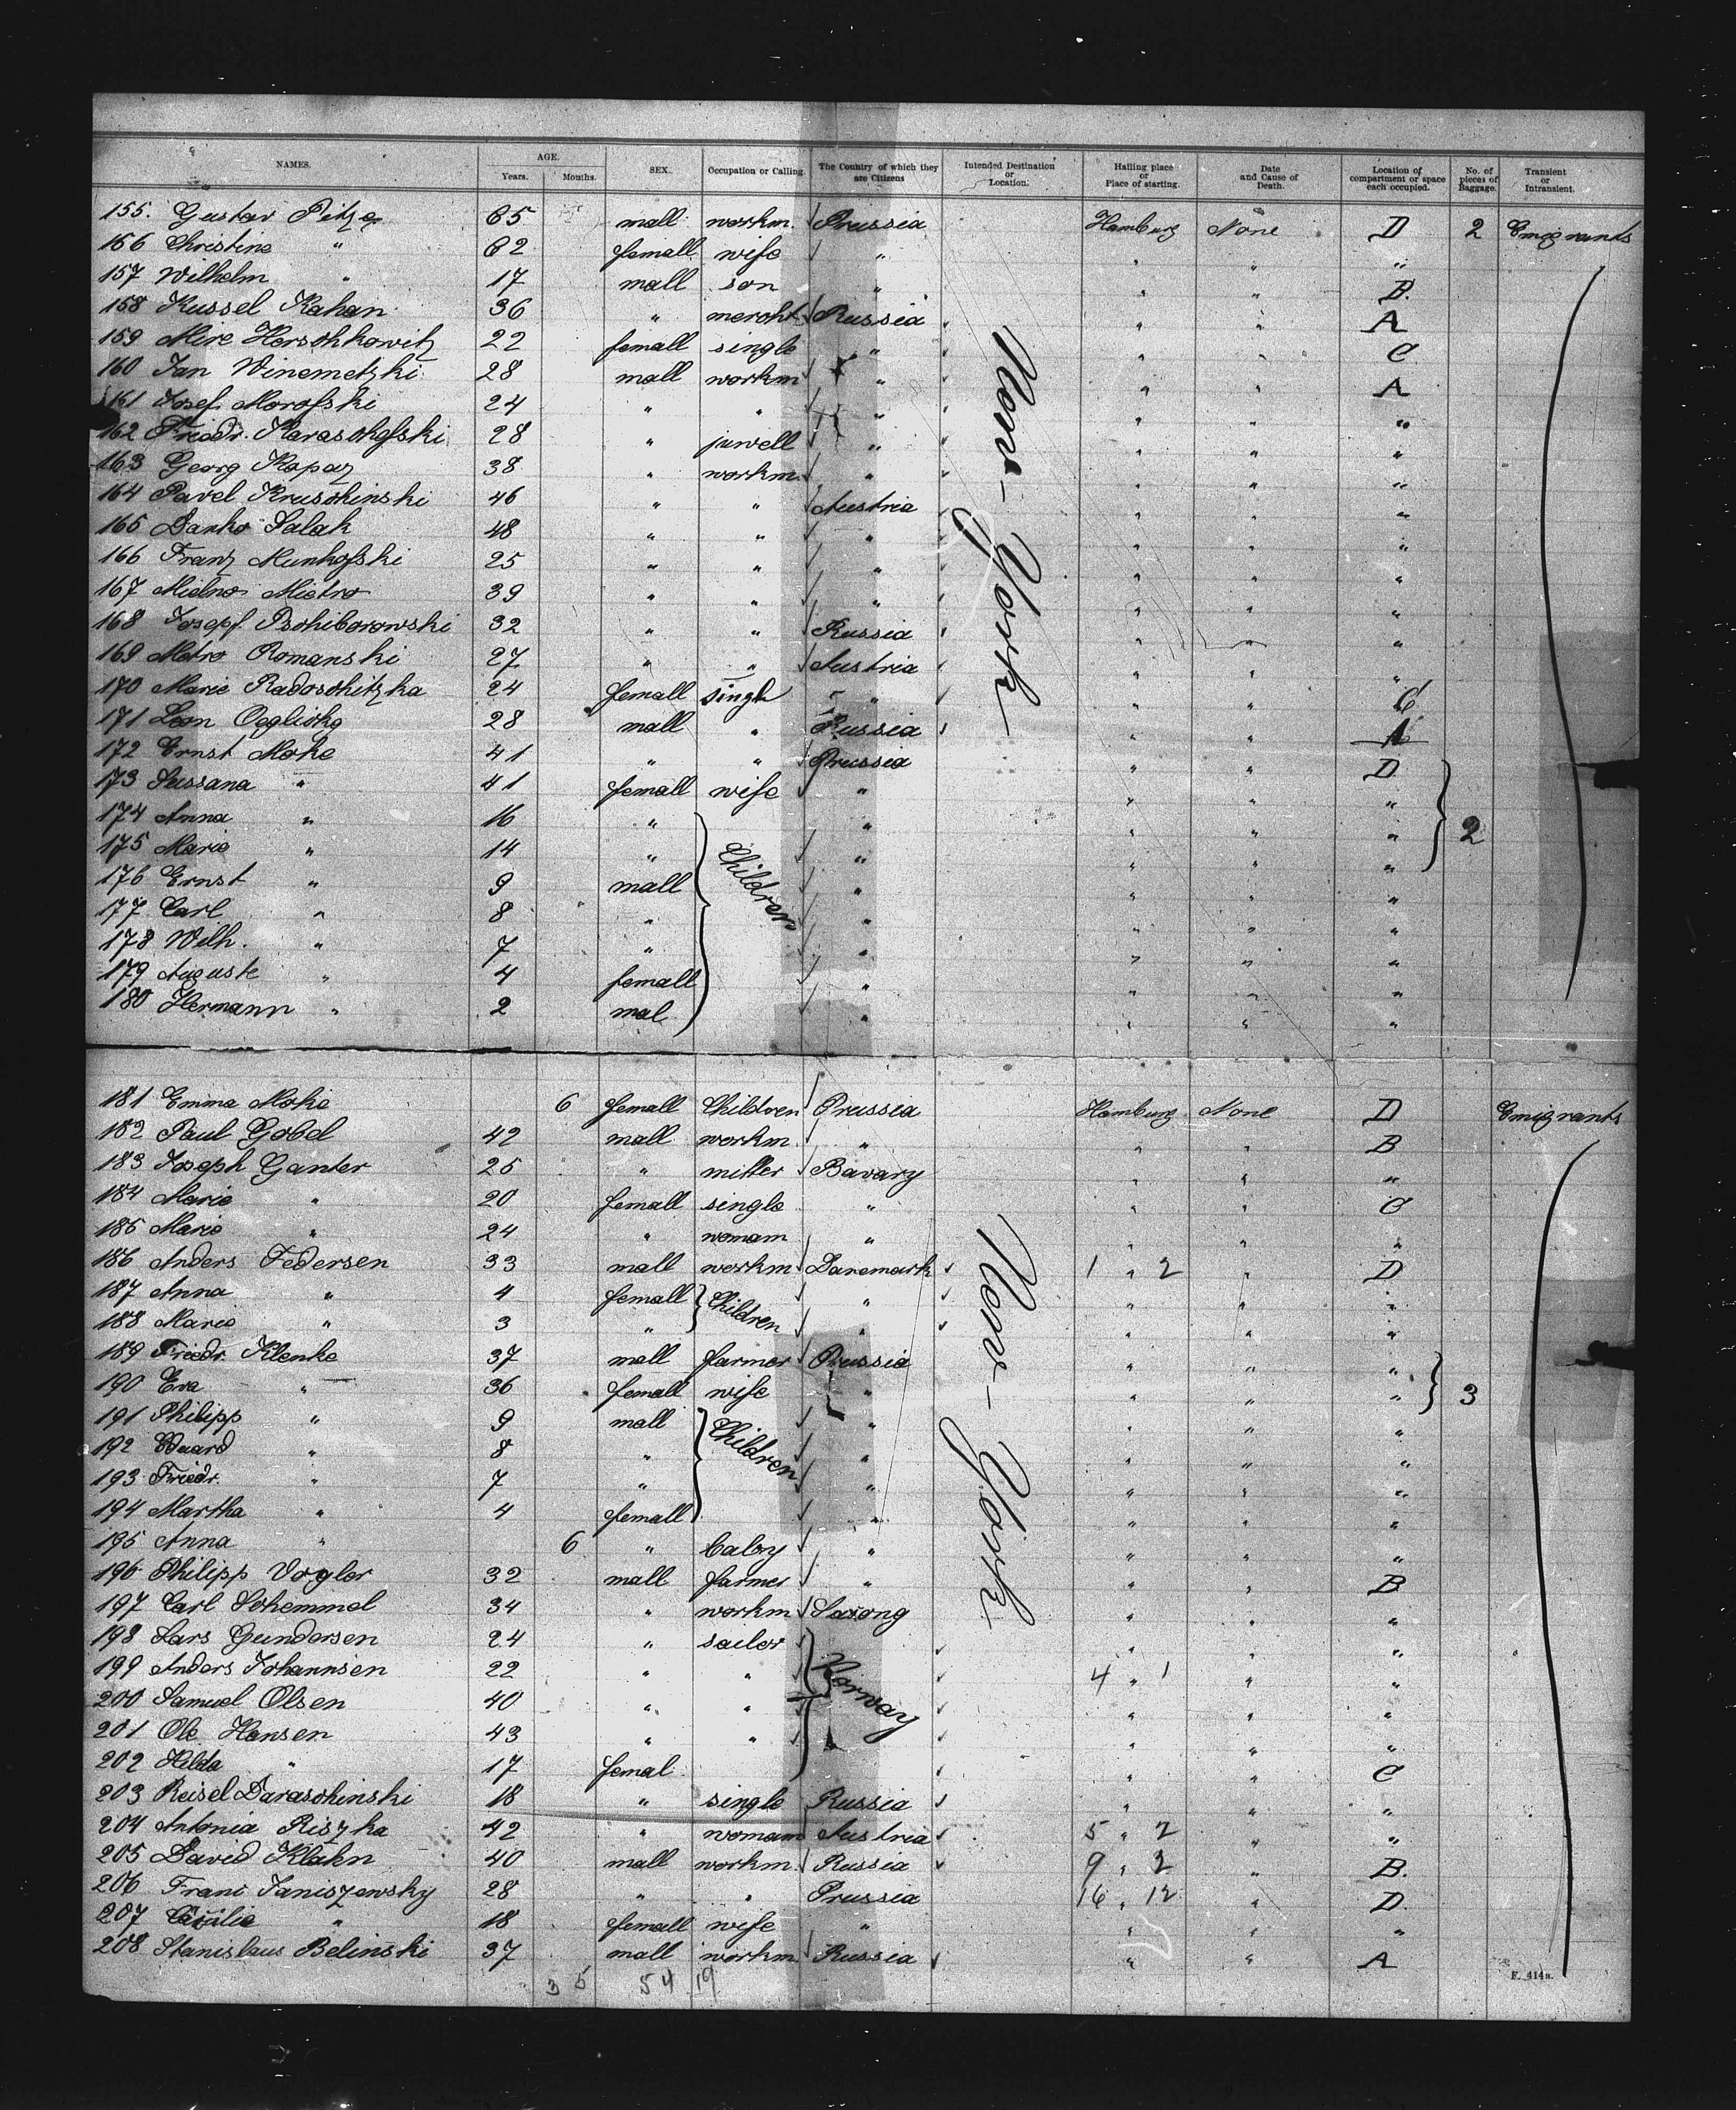 NAMES. AGE. Years. Months. SEX. Occupation or Calling. The Country of which they are Citizens Intended Destination or Location. Hailing place or Place of starting. Date and Cause of Death. Location of compartment or space each occupied. No. of pieces of Baggage. Transient or Intransient.
155. Gustav 65 mall workm. Prussia Hamburg None D 2 Emigrants
156 Christine " 62 femall wife " " " "
157 Wilhelm " 17 mall son " " " B.
158 Kussel Kahan 36 " mercht Russia " " A
159 Mire Herschkowitz 22 femall single " " " C
160 Jan Winemetzki 28 mall workm " " " A
161 Josef Morofski 24 " " " " " "
162 Friedr. Karaschofski 28 " juwell " " " "
163 Georg Kopaz 38 " workm. " " " "
164 Pavel Kruschinski 46 " " Austria " " "
165 Danko Salak 48 " " " " " "
166 Franz Munkofski 25 " " " " " "
167 Mietro 39 " " " " " "
168 Josepf Pschiborowski 32 " " Russia " " "
169 Metro Romanski 27 " " Austria " " "
170 Marie Radoschitzka 24 femall singl " " " C
171 Leon 28 mall " Russia " " A
172 Ernst Moke 41 " " Prussia " " D
173 Sussana " 41 femall wife " " " "
174 Anna " 16 " " " " " 2
175 Marie " 14 " Children " " " "
176 Ernst " 9 mall " " " "
177 Carl " 8 " " " " "
178 Wilh. " 7 " " " " "
179 Auguste " 4 femall " " " "
180 Hermann " 2 mal " " " "
New-York
181 Emma Moke 6 femall Children Prussia Hamburg None D Emigrants
182 Paul Gobel 42 mall workm. " " " B
183 Joseph Ganter 25 " miller Bavary " " "
184 Marie " 20 femall single " " " C
185 Marie " 24 " womam " " " "
186 Anders Federsen 33 mall workm Danemark 1 " 2 " D
187 Anna " 4 femall Children " " " "
188 Marie " 3 " " " " "
189 Friedr. Klenke 37 mall farmer Prussia " " "
190 Eva " 36 femall wife " " " " 3
191 Philipp " 9 mall Children " " " "
192 Eduard " 8 " " " " "
193 Friedr. " 7 " " " " "
194 Martha " 4 femall " " " "
195 Anna " 6 " baby " " " "
196 Philipp Vogler 32 mall farmer " " " B
197 Carl Schemmel 34 " workm Saxony " " "
198 Lars Gundersen 24 " sailor Norway " " "
199 Anders Johannsen 22 " " 4 " 1 " "
200 Samuel Olsen 40 " " " " "
201 Ole Hansen 43 " " " " "
202 Hilda " 17 femal " " C
203 Reisel Daraschinski 18 " single Russia " " "
204 Antonia Riszka 42 " womam Austria 5 " 2 " "
205 David Klahn 40 mall workm. Russia 9 " 2 " B.
206 Franz Janiszewsky 28 " " Prussia 16 " 12 " D.
207 Cäcilie " 18 femall wife " " " "
208 Stanislaus Belinski 37 mall workm. Russia " " A
New-York
3 5 54 19
F. 414a.